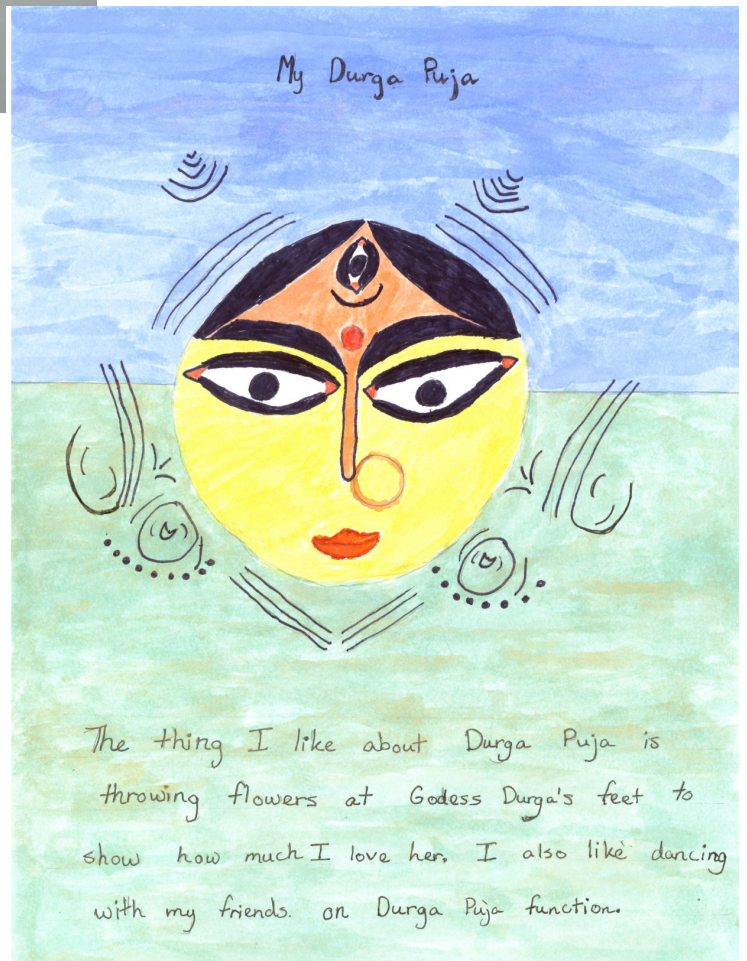 My Durga Puja
The thing I like about Durga Puja is
throwing flowers at Godess Durga's feet to
show how much I love her. I also like dancing
with my friends. on Durga Puja function.